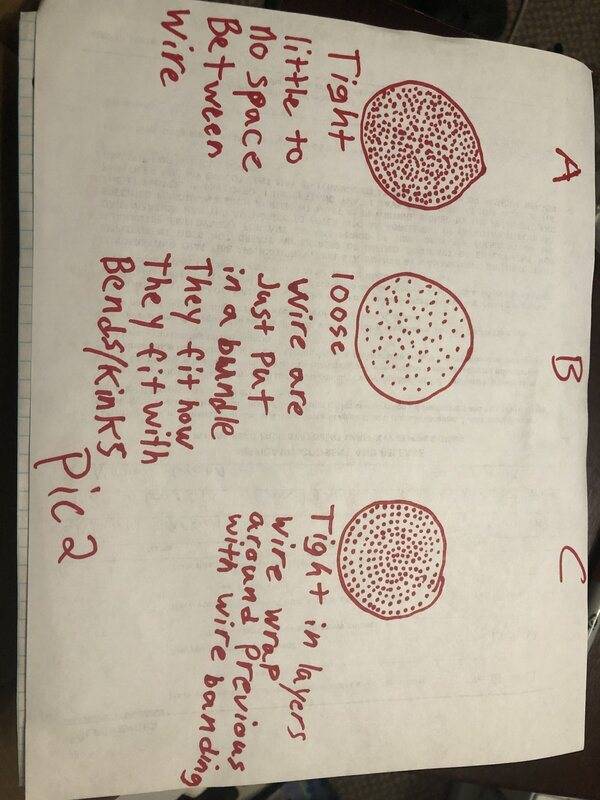 A
Tight
little to
no space
Between
wire
B
loose
wire are
Just put
in a bundle
They fit how
They fit with
Bends/kinks
C
Tight in layers
wire wrap
around previous
with wire banding
Pic 2